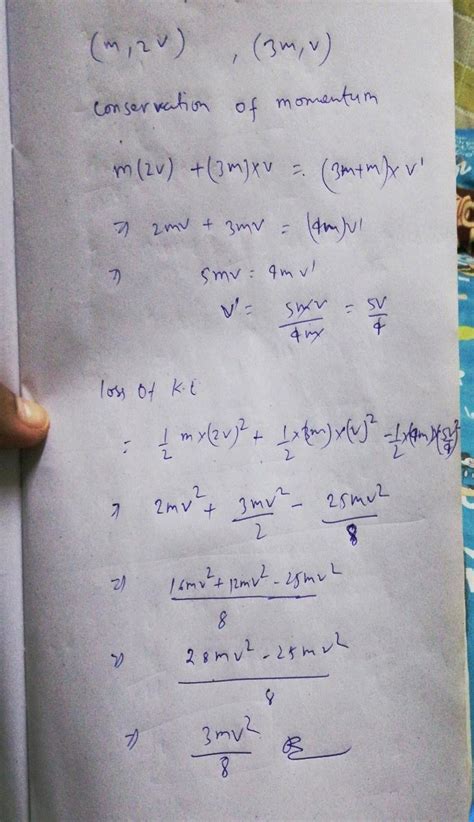 (m, 2v) , (3m, v)
conservation of momentum
m(2v) + (3m)×v = (3m+m)× v'
⇒ 2mv + 3mv = (4m)v'
⇒ 5mv = 4mv'
v' = 5mv/4m = 5v/4
loss of K.E
= 1/2 m×(2v)² + 1/2×(3m)×(v)² - 1/2×(4m)×(5v/4)²
⇒ 2mv² + 3mv²/2 - 25mv²/8
⇒ 16mv² + 12mv² - 25mv²/8
⇒ 28mv² - 25mv²/8
⇒ 3mv²/8